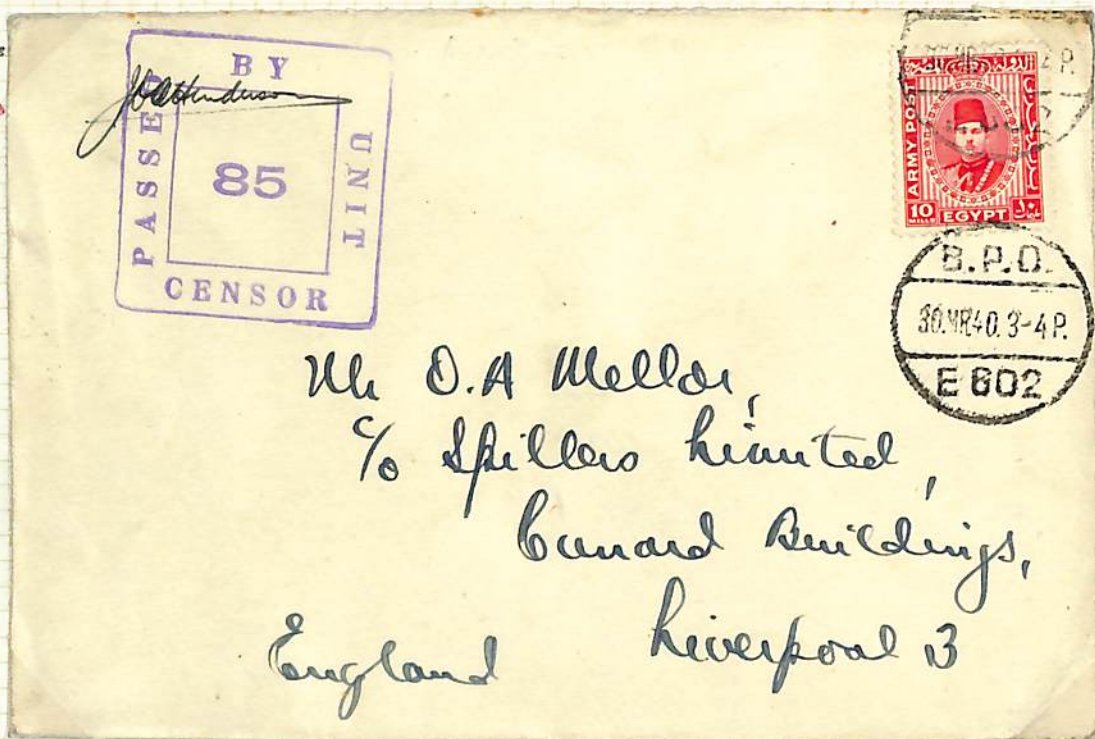 PASSED BY UNIT CENSOR
85
ARMY POST
10 MILLS EGYPT
B.P.O.
30.MR40.3-4P.
E 602
Mr O.A Mellor,
c/o Spillers Limited,
Cunard Buildings,
Liverpool 3
England